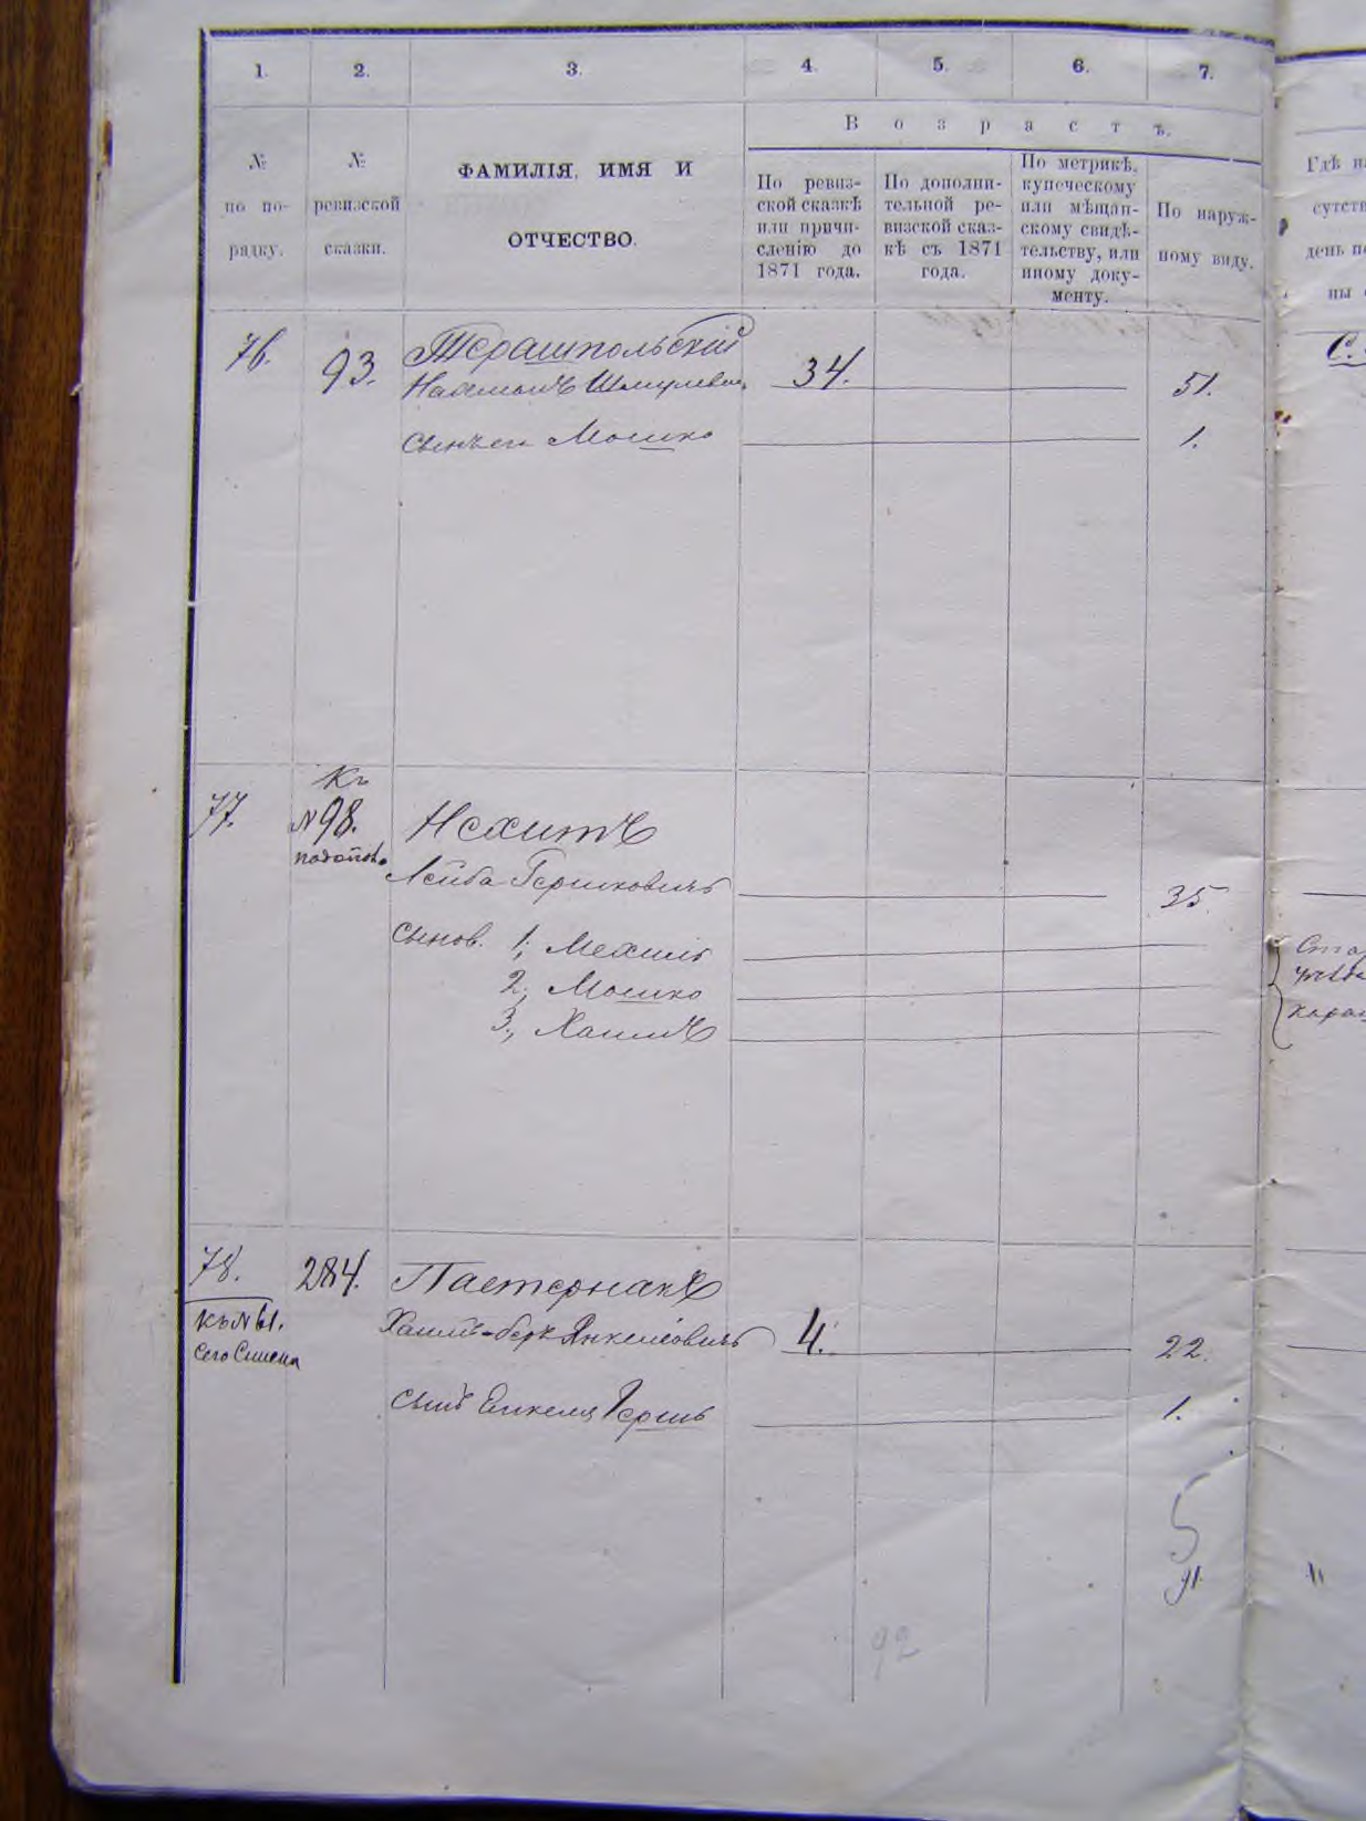 1. 2. 3. 4. 5. 6. 7.
Возрастъ.
№ по по-
рядку.
№
ревизской
сказки.
ФАМИЛІЯ, ИМЯ И
ОТЧЕСТВО.
По ревиз-
ской сказкѣ
или причи-
сленію до
1871 года.
По дополни-
тельной ре-
визской сказ-
кѣ съ 1871
года.
По метрикѣ,
купеческому
или мѣщан-
скому свидѣ-
тельству, или
иному доку-
менту.
По наруж-
ному виду.
76. 93. Терашпольскій
Нахманъ Шмулевичъ 34. 51.
Сынъ его Мошко 1.
Къ
77. №98. Нехитъ
Лейба Гершковичъ 35.
Сынов. 1, Мехиль
2, Мошко
3, Хаимъ
78. 284. Пастернакъ
Къ №61. Хаимъ-Беръ Янкелевичъ 4. 22.
сего Списка
Сынъ Гершъ 1.
5
91
92